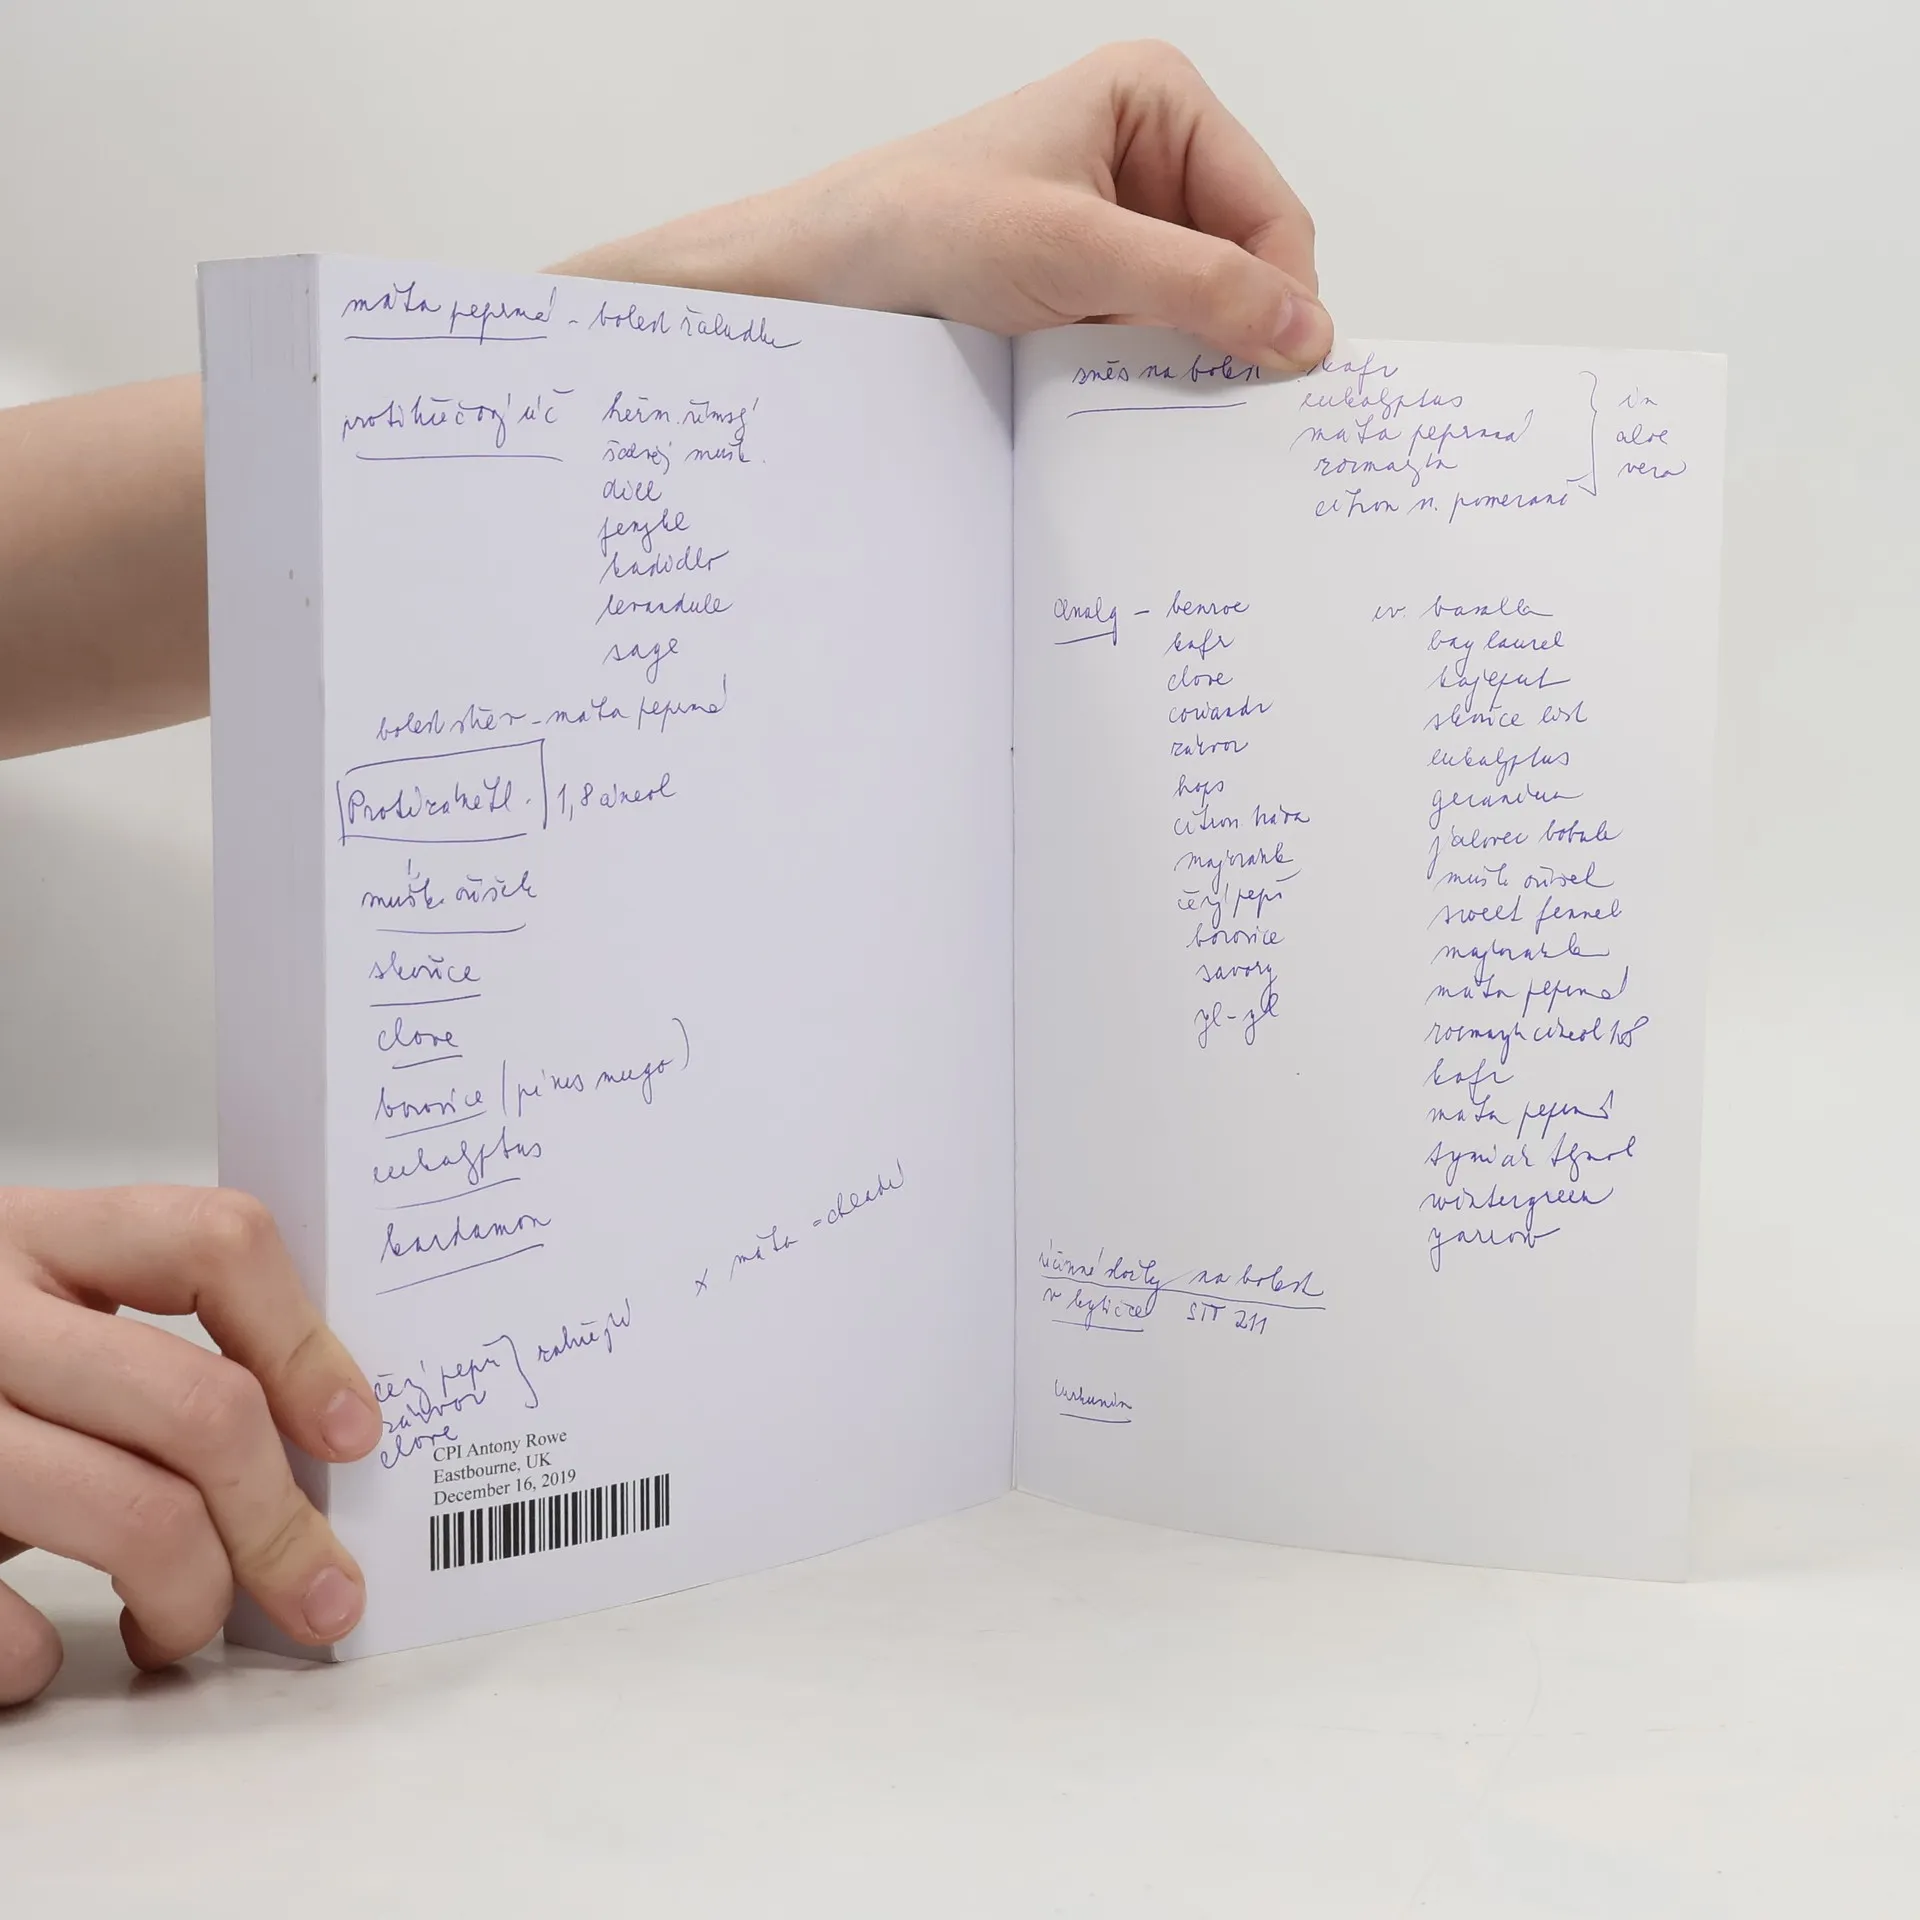 máta peprná - bolest žaludku
protikřečový úč
heřm. římský
šalvěj mušk.
dill
fenykl
kadidlo
levandule
sage
bolest střev - máta peprná
Protizánětl. 1,8 cineol
mušk. oříšek
skořice
clove
borovice (pinus mugo)
eukalyptus
kardamon
x máta - chladí
čer. pepř
zázvor
clove
zahřejí
CPI Antony Rowe
Eastbourne, UK
December 16, 2019
směs na bolest
kafr
eukalyptus
máta peprná
rozmarýn
citron n. pomeranč
in
aloe
vera
Analg - benzoe
kafr
clove
coriandr
zázvor
hops
citron. tráva
majoránk
čer. pepř
borovice
savory
yl-yl
bay laurel
kajeput
skořice list
eukalyptus
geranium
jalovec bobule
mušk oříšek
sweet fennel
majoránka
máta peprná
rozmarýn cineol 1,8
kafr
máta peprná
tymián thymol
wintergreen
yarrow
účinné složky na bolest
v kytičce STT 211
kurkumin